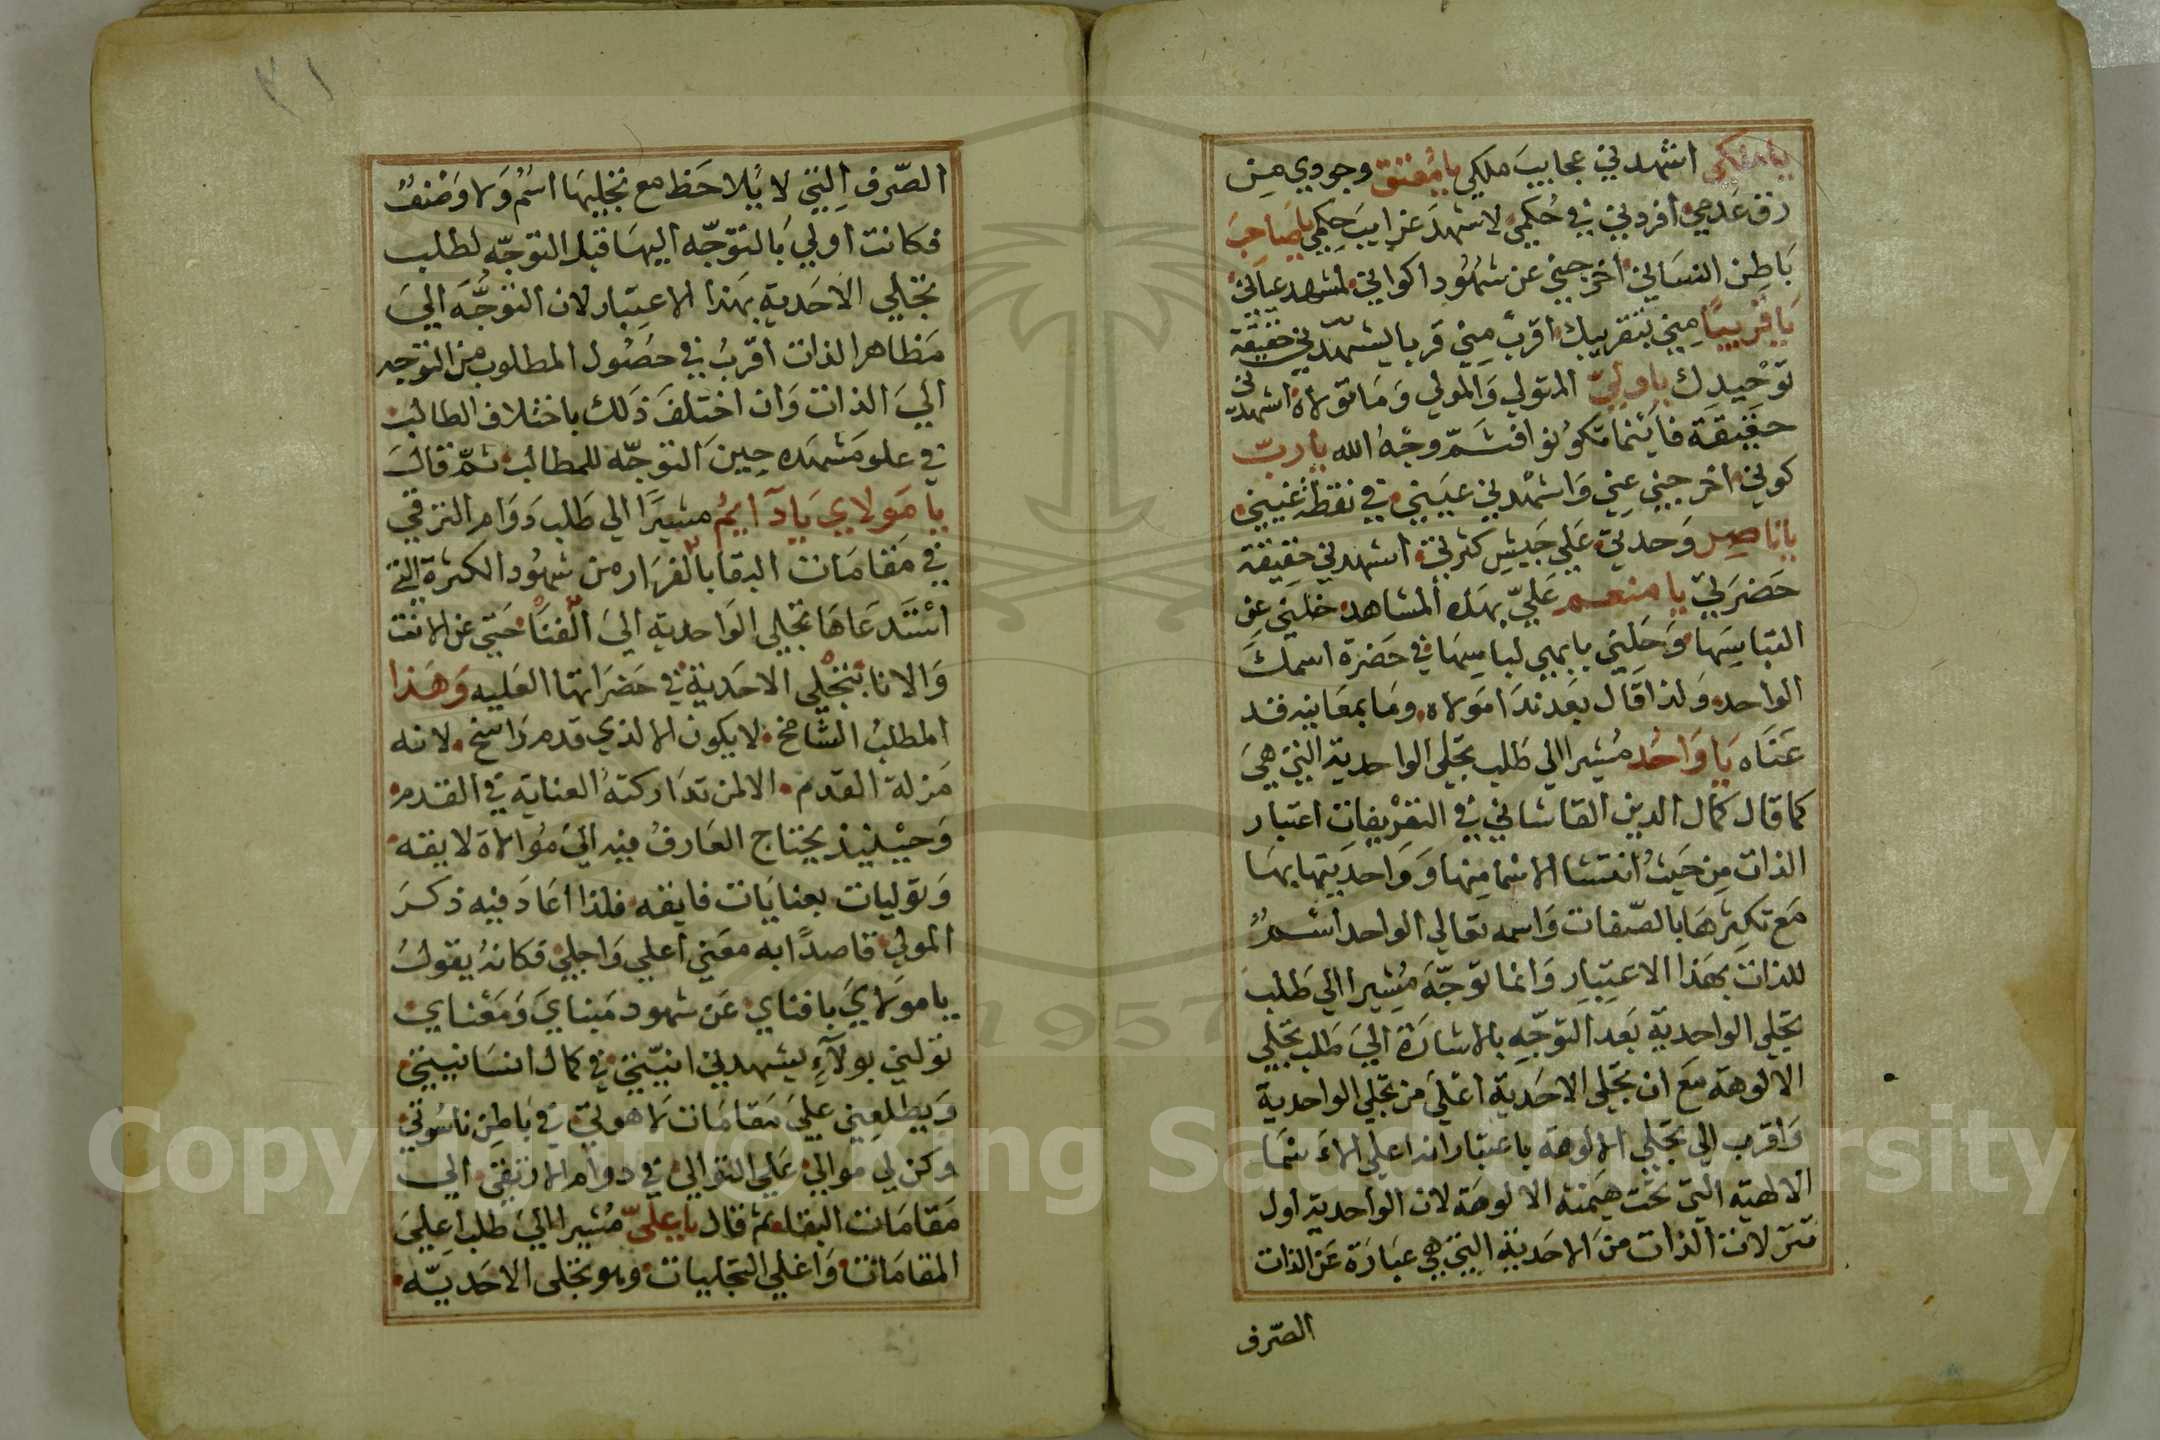 يا ملكي اشهدني عجايب ملكي يا مفتق وجودي من
رق عدمي افردني في حكمي لاشهد غرايب حكمي يا صاحب
باطن انساني اخرجني عن شهود اكواني لشهد عياني
يا قريبا مني بتقريبك اقرب مني قربا يشهدني حقيقة
توحيدك يا ولي المتولي والمولي وما تولاه اشهدني
حقيقة فاينما تكونوا فثم وجه الله يا رب
كوني اخرجني عني واشهدني عيبني في نقطة غيبني
يا ناصر وحدتي علي جيش كثرتي اشهدني حقيقة
حضرتي يا منعم علي بهذه المشاهد خلني عن
التباسها وحلني بابهي لباسها في حضرة اسمك
الواحد ولذا قال بعد ندا مولاه وما بمعانيه قد
عناه يا واحد مشيرا الي طلب تجلي الواحدية التي هي
كما قال كمال الدين القاشاني في التعريفات اعتبار
الذات من حيث انتشا الاسما منها وواحديتها بها
مع تكثرها بالصفات واسمه تعالي الواحد اسم
للذات بهذا الاعتبار وانما توجه مشيرا الي طلب
تجلي الواحدية بعد التوجه بالاشارة الي طلب تجلي
الالوهة مع ان تجلي الاحدية اعلي من تجلي الواحدية
واقرب الي تجلي الالوهة باعتبار انها اعلي الاسما
الالهية التي تحت هيمنة الالوهة لان الواحدية اول
تنزلات الذات من الاحدية التي هي عبارة عن الذات
الصرف
٣١
الصرف التي لا يلاحظ مع تجليها اسم ولا وصف
فكانت اولي بالتوجه اليها قبل التوجه لطلب
تجلي الاحدية بهذا الاعتبار لان التوجه الي
مظاهر الذات اقرب في حصول المطلوب من التوجه
الي الذات وان اختلف ذلك باختلاف الطالب
في علو مشهده حين التوجه للمطالب ثم قال
يا مولاي يا دايم مشيرا الي طلب دوام الترقي
في مقامات البقا بالفرار من شهود الكثرة التي
استدعاها تجلي الواحدية الي الفنا حتي عن الانت
والانا بتجلي الاحدية في حضراتها العليه وهذا
المطلب الشامخ لا يكون الا لذي قدم راسخ لانه
مزلة القدم الا لمن تداركته العناية في القدم
وحينيذ يحتاج العارف فيه الي موالاة لايقه
وتوليات بعنايات فايقه فلذا اعاد فيه ذكر
المولي قاصدا به معني اعلي واجلي فكانه يقول
يا مولاي بافناي عن شهود مبناي ومعناي
تولني بولاء يشهدني انيتي في كمال انسانيتي
ويطلعني علي مقامات لاهوتي في باطن ناسوتي
وكن لي موالي علي التوالي في دوام الارتقي الي
مقامات البقا ثم قال يا علي مشيرا الي طلب اعلي
المقامات واعلي التجليات وهو تجلي الاحديه
Copyright © King Saud University
1957